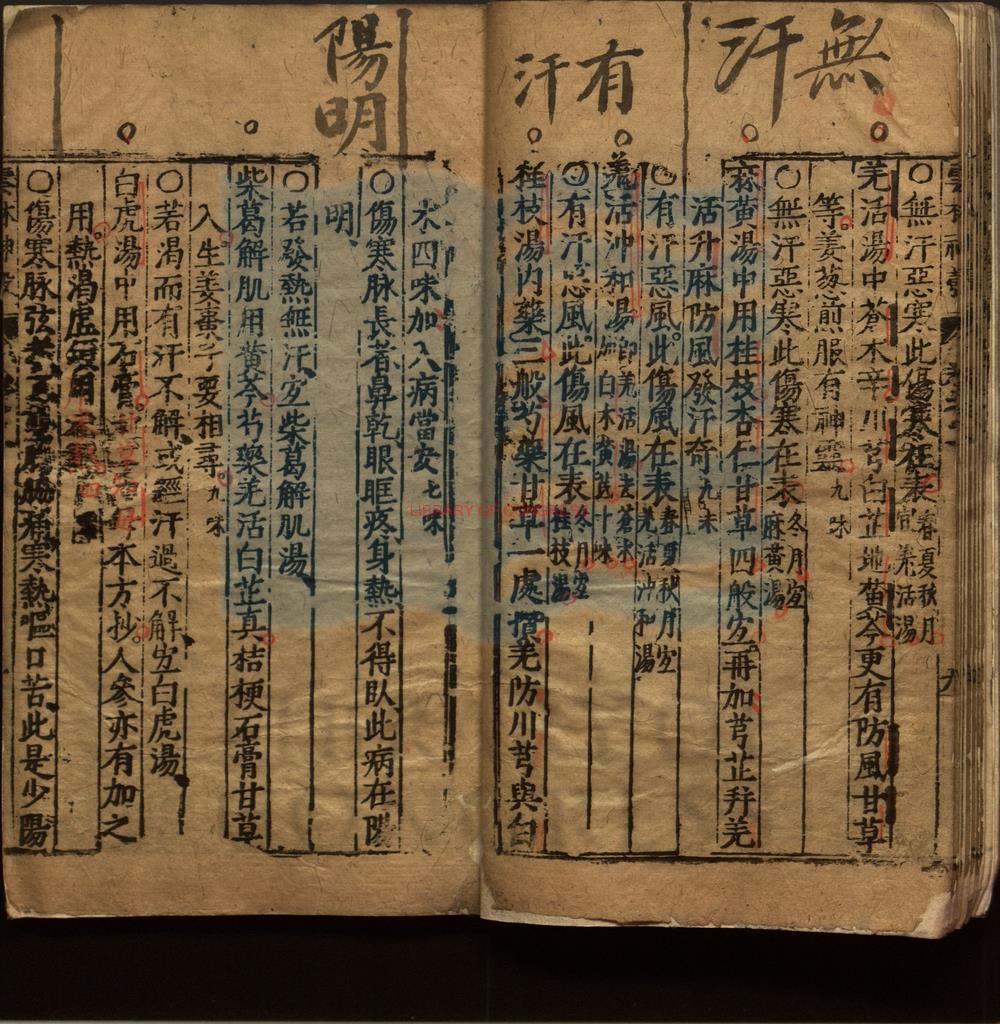 無汗
有汗
○無汗惡寒此傷寒在表春夏秋月宜羌活湯
羌活湯中蒼朮辛川芎白芷地黃芩更有防風甘草
等姜葱煎服有神靈九味
○無汗惡寒此傷寒在表冬月宜麻黃湯
麻黃湯中用桂枝杏仁甘草四般宜再加芎芷并羌
活升麻防風發汗奇九味
○有汗惡風此傷風在表春夏秋月宜羌活沖和湯
羌活沖和湯即羌活湯去蒼朮加白朮黃芪十味
○有汗惡風此傷風在表冬月宜桂枝湯
桂枝湯內藥三般芍藥甘草一處攢羌防川芎與白
陽明
朮四味加入病當安七味
○傷寒脉長者鼻乾眼眶疼身熱不得臥此病在陽
明
○若發熱無汗宜柴葛解肌湯
柴葛解肌用黃芩芍藥羌活白芷真桔梗石膏甘草
入生姜棗子要相尋九味
○若渴而有汗不解或經汗過不解宜白虎湯
白虎湯中用石膏知母本方抄人參亦有加之
用熱渴虛煩用
○傷寒脉弦者脇痛寒熱嘔口苦此是少陽
LIBRARY OF CONGRESS